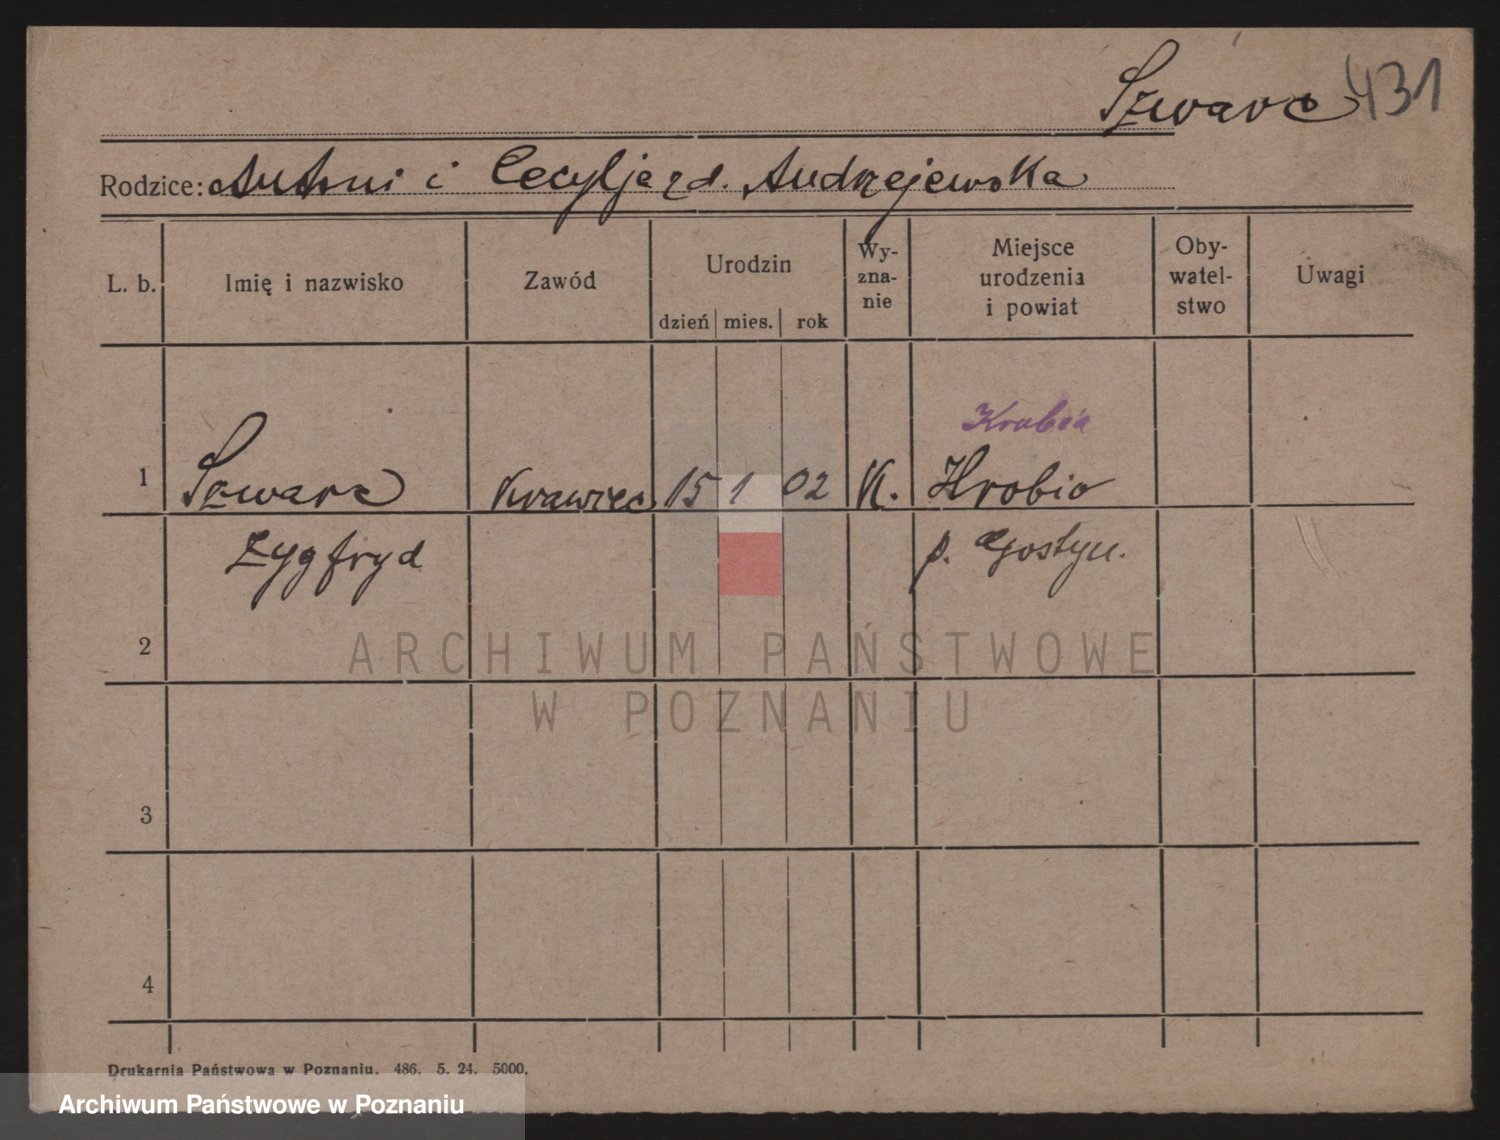 Szwarc 431
Rodzice: Antoni i Cecylja zd. Andrzejewska
L. b. Imię i nazwisko Zawód Urodzin dzień mies. rok Wy-zna-nie Miejsce urodzenia i powiat Oby-watel-stwo Uwagi
Krobia
1 Szwarc Krawiec 15 1 02 K. Hrobio
Zygfryd p. Gostyn.
2
ARCHIWUM PAŃSTWOWE
W POZNANIU
3
4
Drukarnia Państwowa w Poznaniu. 486. 5. 24. 5000.
Archiwum Państwowe w Poznaniu